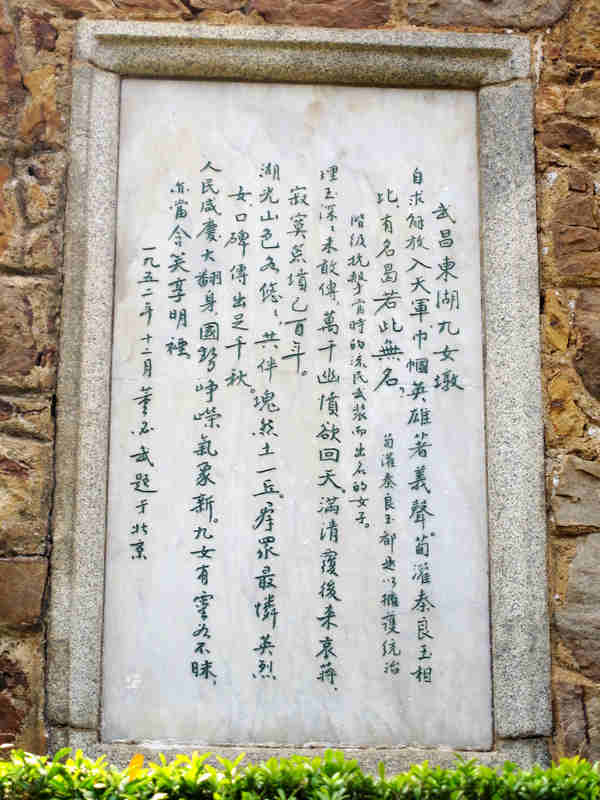 武昌東湖九女墩
自求解放入天軍，巾幗英雄著義聲。荀灌秦良玉相
比，有名曷若此無名。 荀灌秦良玉都是以擁護統治
階級抗擊當時的流民武裝而出名的女子。
埋玉深々未敢傳，萬千幽憤欲回天。滿清覆後来袁蔣，
寂寞荒墳已百年。
湖光山色各悠々，共伴塊然土一丘。羣眾最憐英烈
女口碑傳出足千秋。
人民咸慶大翻身，國勢崢嶸氣象新。九女有靈不昧，
亦當含笑享明禋
一九五二年十二月董必武題于北京